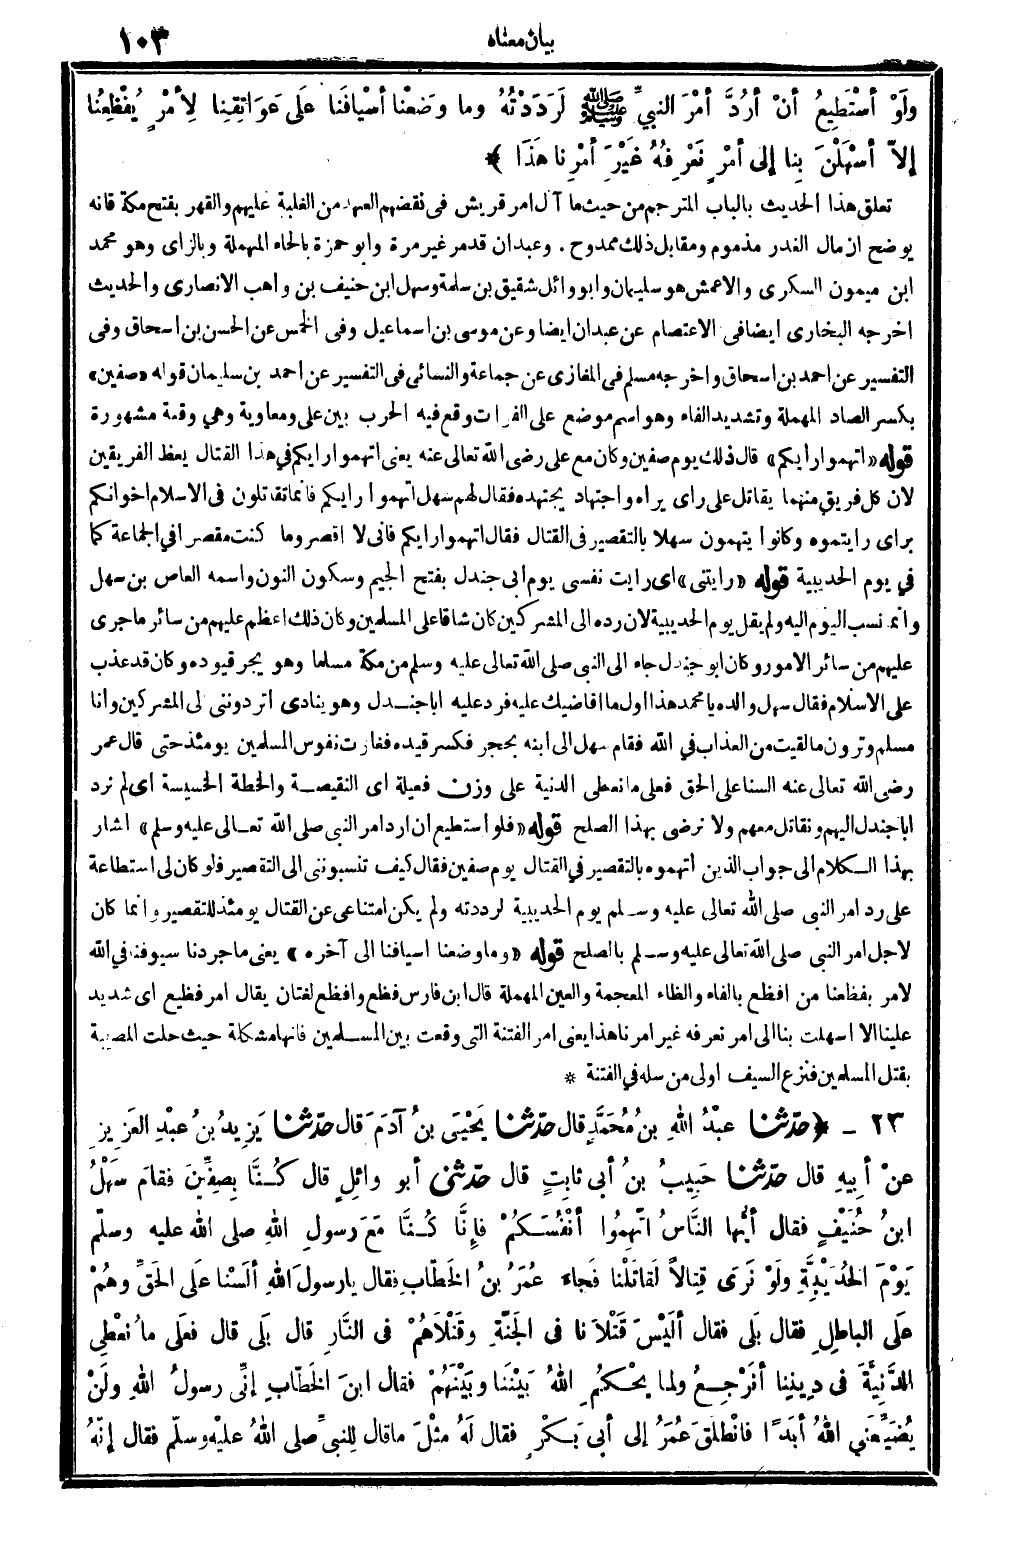 بيان معناه
١٠٣
ولَوْ أسْتَطِيعُ أنْ أرُدَّ أمْرَ النبيِّ ﷺ لَرَدَدْتُهُ وما وضَعْنا أسْيافَنَا عَلَى عَوَاتِقِينا لِأمْرٍ يُفْظِعُنا
إلاَّ أسْهَلْنَ بِنا إلى أمْرٍ نَعْرِفُهُ غَيْرَِ أمْرِنا هَذَا ﴾
تعلق هذا الحديث بالباب المترجم من حيث ما آل امر قريش فى نقضهم العهد من الغلبة عليهم والقهر بفتح مكة فانه
يوضح ان مال الغدر مذموم ومقابل ذلك ممدوح . وعبدان قدمر غير مرة وابو حمزة بالحاء المهملة وبالزاى وهو محمد
ابن ميمون السكرى والاعمش هو سليمان وابو وائل شقيق بن سلمة وسهل ابن حنيف بن واهب الانصارى والحديث
اخرجه البخارى ايضا فى الاعتصام عن عبدان ايضا وعن موسى بن اسماعيل وفى الخمس عن الحسن بن اسحاق وفى
التفسير عن احمد بن اسحاق واخرجه مسلم فى المغازى عن جماعة والنسائى فى التفسير عن احمد بن سليمان قوله «صفين»
بكسر الصاد المهملة وتشديد الفاء وهو اسم موضع على الفرات وقع فيه الحرب بين على ومعاوية وهي وقعة مشهورة
قوله «اتهموا رايكم» قال ذلك يوم صفين وكان مع على رضى الله تعالى عنه يعنى اتهموا رايكم في هذا القتال يعظ الفريقين
لان كل فريق منهما يقاتل على راى يراه واجتهاد يجتهده فقال لهم سهل اتهموا رايكم فانما تقاتلون فى الاسلام اخوانكم
براى رايتموه وكانوا يتهمون سهلا بالتقصير فى القتال فقال اتهموا رايكم فانى لا اقصر وما كنت مقصرا في الجماعة كما
في يوم الحديبية قوله «رايتنى» اى رايت نفسى يوم ابى جندل بفتح الجيم وسكون النون واسمه العاص بن سهل
وانما نسب اليوم اليه ولم يقل يوم الحديبية لان رده الى المشركين كان شاقا على المسلمين وكان ذلك اعظم عليهم من سائر ماجرى
عليهم من سائر الامور وكان ابو جندل جاء الى النبى صلى الله تعالى عليه وسلم من مكة مسلما وهو يجر قيوده وكان قد عذب
على الاسلام فقال سهل والده يا محمد هذا اول ما اقاضيك عليه فرد عليه اباجندل وهو ينادى اتردوننى لى المشركين وانا
مسلم وترون مالقيت من العذاب في الله فقام سهل الى ابنه بحجر فكسر قيده فغارت نفوس المسلمين يومئذ حتى قال عمر
رضى الله تعالى عنه السنا على الحق فعلى ما نعطى الدنية على وزن فعيلة اى النقيصة والخطة الخسيسة اى لم نرد
اباجندل اليهم ونقاتل معهم ولا نرضى بهذا الصلح قوله «فلو استطيع ان ارد امر النبى صلى الله تعالى عليه وسلم» اشار
بهذا الكلام الى جواب الذين اتهموه بالتقصير في القتال يوم صفين فقال كيف تنسبوننى الى التقصير فلو كان لى استطاعة
على رد امر النبى صلى الله تعالى عليه وسلم يوم الحديبية لرددته ولم يكن امتناعى عن القتال يومئذ للتقصير وانما كان
لاجل امر النبى صلى الله تعالى عليه وسلم بالصلح قوله «وما وضعنا اسيافنا الى آخره» يعنى ماجردنا سيوفنا في الله
لامر يفظعنا من افظع بالفاء والظاء المعجمة والعين المهملة قال ابن فارس فظع وافظع لغتان يقال امر فظيع اى شديد
علينا الا اسهلت بنا الى امر نعرفه غير امرنا هذا يعنى امر الفتنة التى وقعت بين المسلمين فانها مشكلة حيث حلت المصيبة
بقتل المسلمين فنزع السيف اولى من سله في الفتنة *
٢٣ - ﴿ حدّثنا عبْدُ اللهِ بنُ مُحَمَّدٍ قال حدّثنا يَحْيَى بنُ آدَمَ قال حدّثنا يَزِيدُ بنُ عبْدِ العَزِيزِ
عنْ أبِيهِ قال حدّثنا حَبِيبُ بنُ أبي ثابِتٍ قال حدّثنى أبو وائِلٍ قال كُنَّا بِصِفِّينَ فقامَ سَهْلُ
ابنُ حُنَيْفٍ فقال أيُّها النَّاسُ اتَّهِمُوا أنْفُسَكُمْ فإنَّا كُنَّا مَعَ رسولِ اللهِ صلى الله عليه وسلّم
يَوْمَ الحُدَيْبِيَّةِ ولَوْ نَرَى قِتالاً لَقاتَلْنا فَجاءَ عُمَرُ بنُ الخَطَّابِ فقال يارسولَ اللهِ ألَسْنا عَلَى الحَقِّ وهُمْ
عَلَى الباطِلِ فقال بَلَى فقال ألَيْسَ قَتْلاَنا فى الجَنَّةِ وقَتْلاَهُمْ فى النَّارِ قال بَلَى قال فعَلَى ما نُعْطِى
الدَّنِيَّةَ فى دِينِنا أنَرْجِعُ ولمَا يحْكُمِ اللهُ بَيْنَنا وبَيْنَهُمْ فقال ابنَ الخَطّابِ إنِّى رسولُ اللهِ ولَنْ
يُضَيِّعَنِي اللهُ أبَدًا فانْطلَقَ عُمَرُ إلى أبي بَكْرٍ فقال لَهُ مثْلَ ماقال لِلنبيِّ صلى اللهُ عليْهِ وسلّم فقال إنّهُ